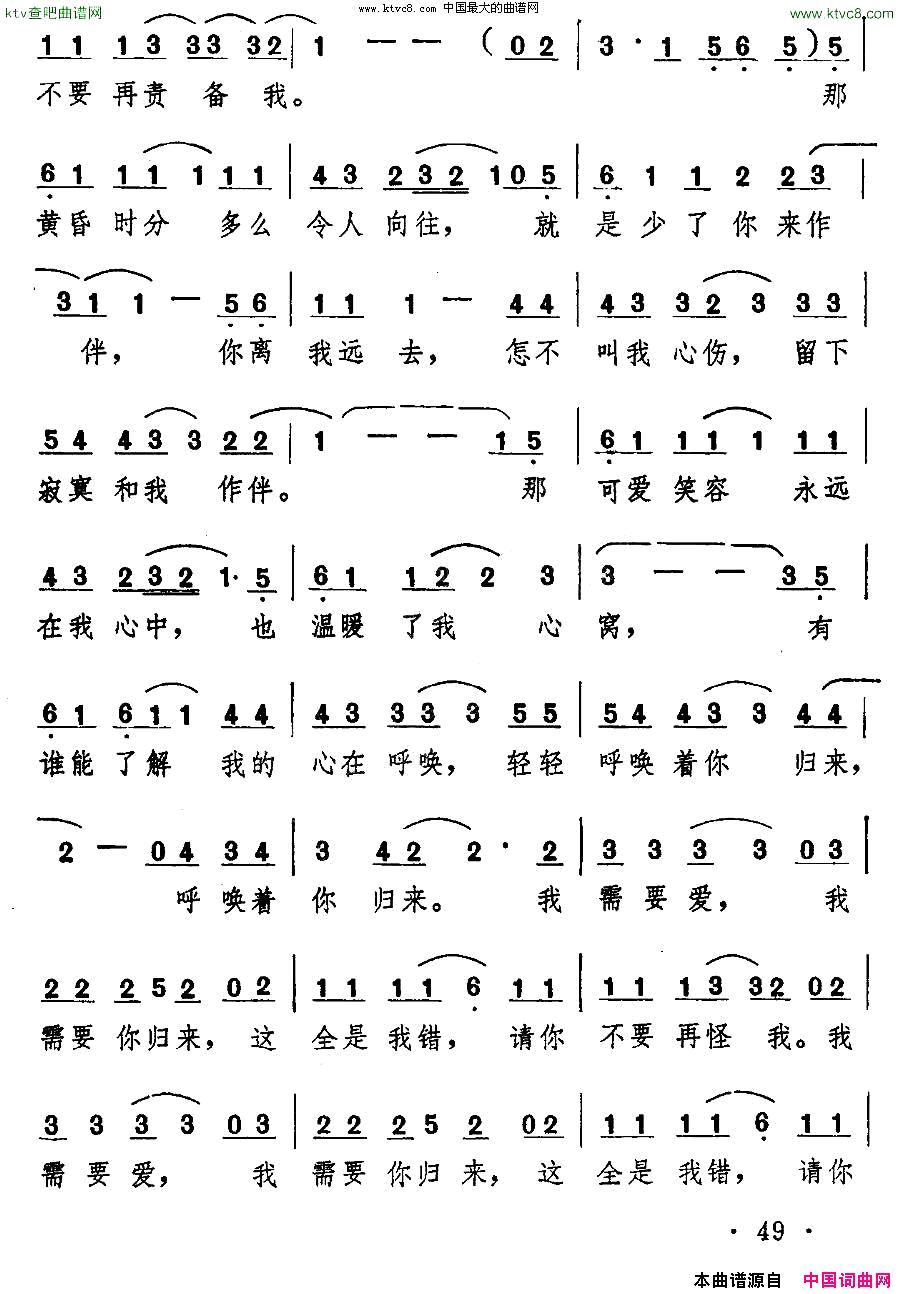 ktv查吧曲谱网 www.ktvc8.com 中国最大的曲谱网 www.ktvc8.com
1 1 1 3 3 3 3 2 | 1 — — ( 0 2 | 3 · 1 5 6 5 ) 5 |
不要 再责 备 我。 那
6 1 1 1 1 1 1 | 4 3 2 3 2 1 0 5 | 6 1 1 2 2 3 |
黄昏 时分 多么 令人 向往， 就 是 少 了 你 来作
3 1 1 — 5 6 | 1 1 1 — 4 4 | 4 3 3 2 3 3 3 |
伴， 你离 我远 去， 怎不 叫我 心伤， 留下
5 4 4 3 3 2 2 | 1 — — 1 5 | 6 1 1 1 1 1 1 |
寂寞 和我 作伴。 那 可爱 笑容 永远
4 3 2 3 2 1 · 5 | 6 1 1 2 2 3 | 3 — — 3 5 |
在我 心中， 也 温暖 了我 心 窝， 有
6 1 6 1 1 4 4 | 4 3 3 3 3 5 5 | 5 4 4 3 3 4 4 |
谁能 了解 我的 心在 呼唤， 轻轻 呼唤 着你 归来，
2 — 0 4 3 4 | 3 4 2 2 · 2 | 3 3 3 3 0 3 |
呼 唤着 你 归来。 我 需 要 爱， 我
2 2 2 5 2 0 2 | 1 1 1 1 6 1 1 | 1 1 1 3 3 2 0 2 |
需要 你归来， 这 全是 我错， 请你 不要 再怪 我。我
3 3 3 3 0 3 | 2 2 2 5 2 0 2 | 1 1 1 1 6 1 1 |
需 要 爱， 我 需要 你归 来， 这 全是 我错， 请你
· 49 ·
本曲谱源自 中国词曲网